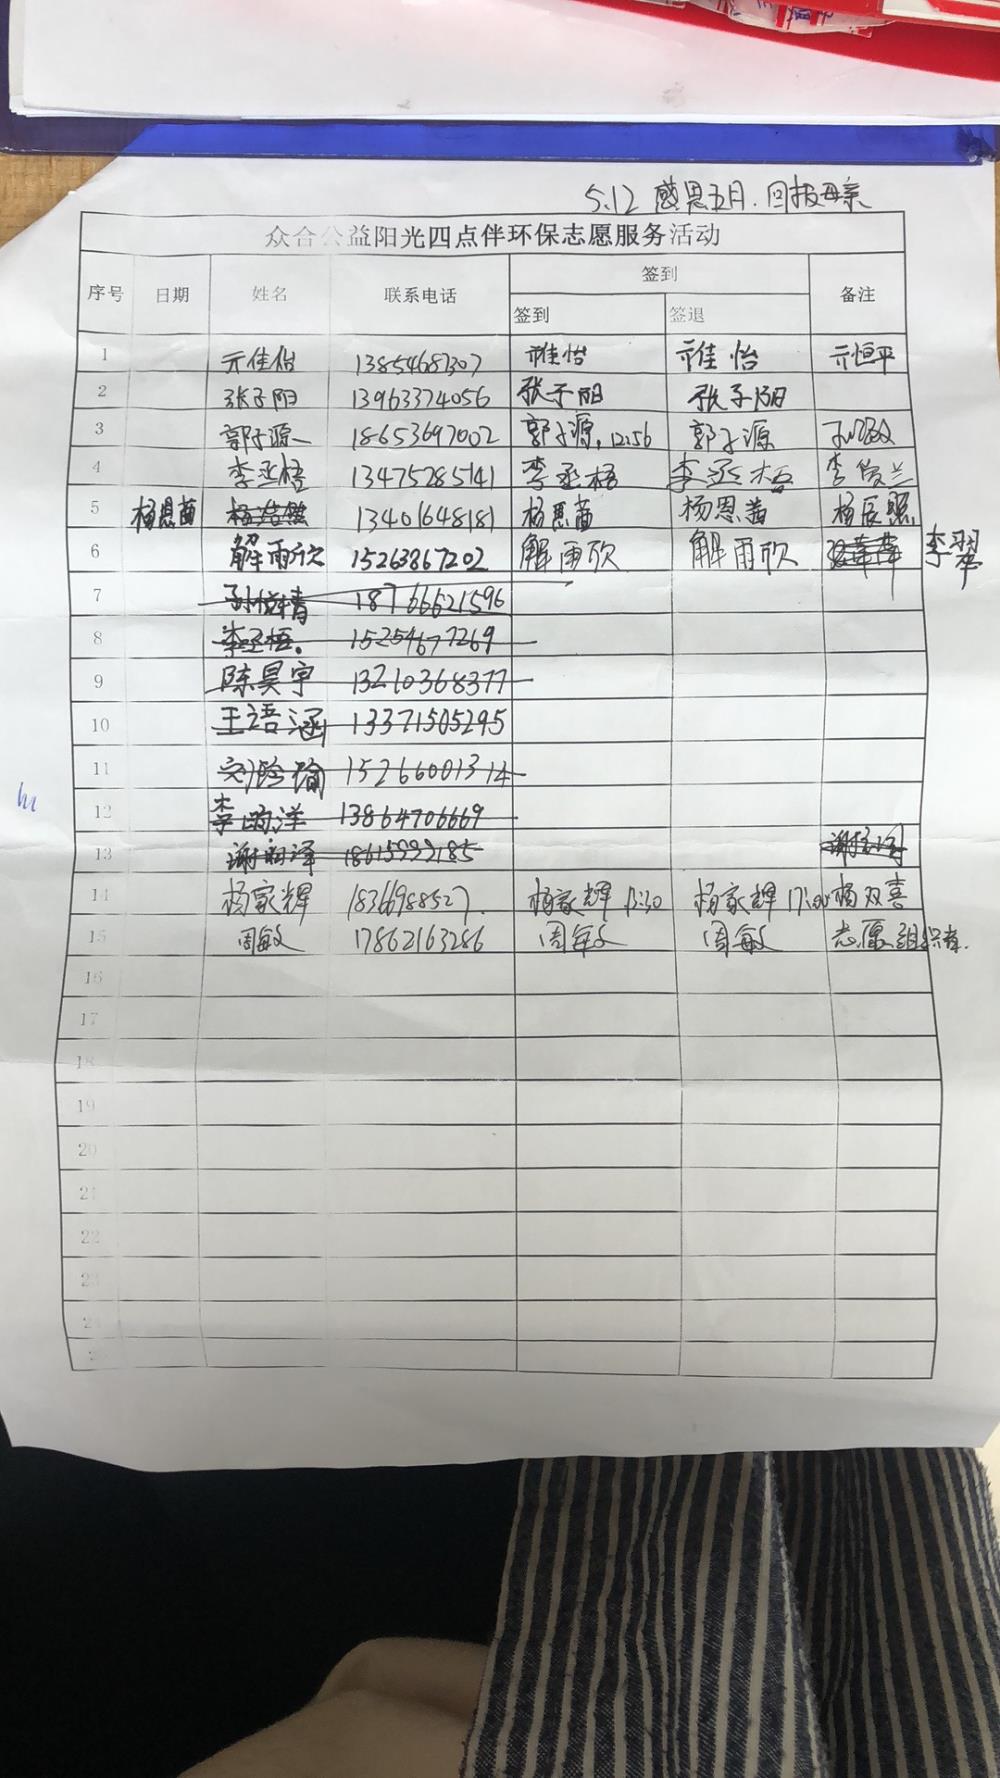 5.12 感恩五月.回报母亲
众合公益阳光四点伴环保志愿服务活动
序号 日期 姓名 联系电话 签到 备注
签到 签退
1 亓佳怡 13854687307 亓佳怡 亓佳怡 亓恒平
2 张子阳 13963374056 张子阳 张子阳
3 郭子源 18653697002 郭子源 12:56 郭子源
4 李丞梧 13475285141 李丞梧 李丞梧 李俊兰
5 杨恩茜 13401648181 杨恩茜 杨恩茜 杨辰熙
6 解雨欣 15263867202 解雨欣 解雨欣 李翠
7 孙悦情 18766621596
8 李丞梧. 15254677269
9 陈昊宇 13210368377
10 王语涵 13371505295
11 15266001314
12 李昀洋 13864706669
13 18615999185
14 杨家辉 18366988527. 杨家辉 13:30 杨家辉 17:00 杨双喜
15 周敏 17862163286 周敏 周敏 志愿组织者.
16
17
18
19
20
21
22
23
24
25